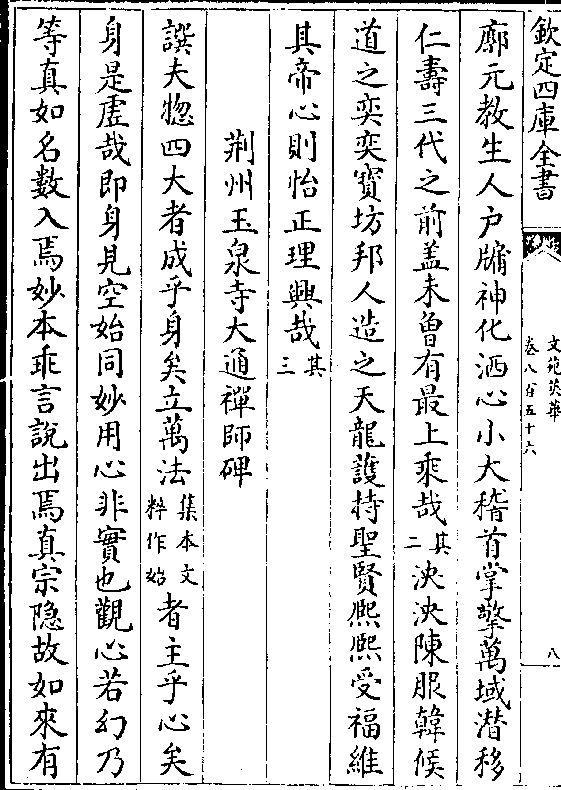 欽定四庫全書
文苑英華
卷八百五十六
八
廓元教生人戶牖神化洒心小大稽首掌擎萬域潛移
仁壽三代之前盖未曽有最上乘哉其二泱泱陳服韓侯
道之奕奕寳坊邦人造之天龍護持聖賢熈熈受福維
其帝心則怡正理興哉其三
荆州玉泉寺大通禪師碑
譔夫惣四大者成乎身矣立萬法集本文粹作始者主乎心矣
身是虛哉即身見空始同妙用心非實也觀心若幻乃
等真如名數入焉妙本乖言說出焉真宗隐故如來有